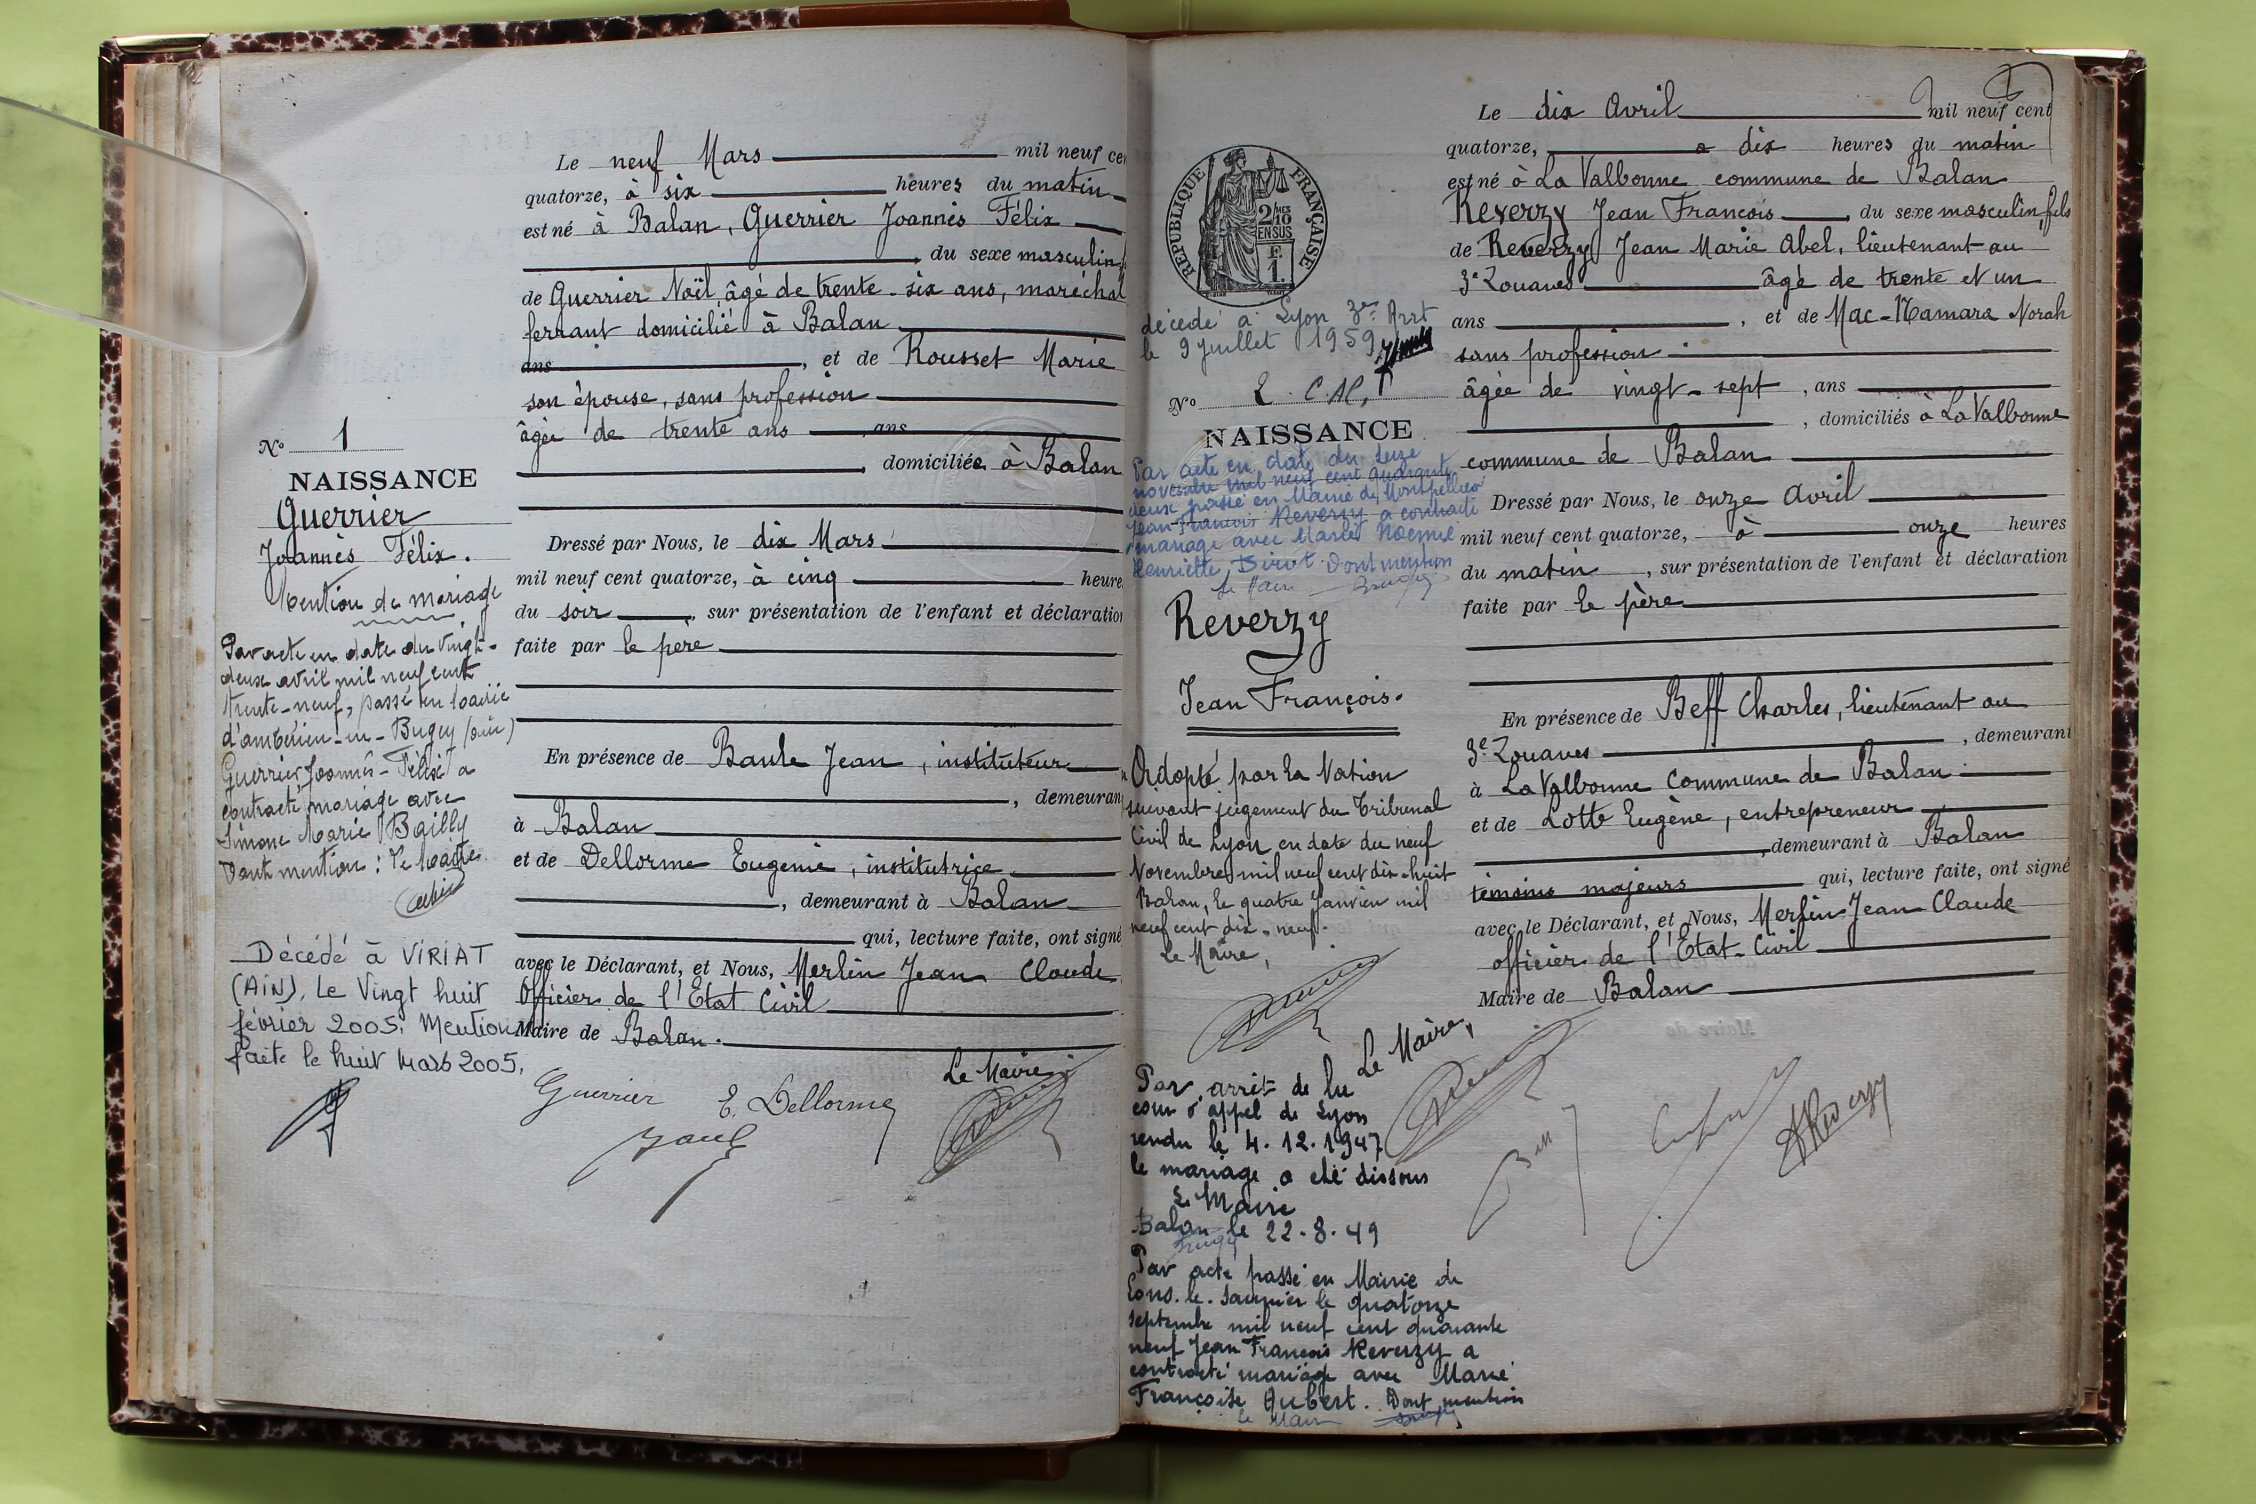 Le neuf Mars mil neuf cen
quatorze, à six heures du matin
est né à Balan, Guerrier Joannès Félix
du sexe masculin,
de Guerrier Noël, âgé de trente-six ans, maréchal
ferrant domicilié à Balan
ans, et de Rousset Marie
son épouse, sans profession
âgée de trente ans ans
domiciliée à Balan
Dressé par Nous, le dix Mars
mil neuf cent quatorze, à cinq heure
du soir, sur présentation de l'enfant et déclaration
faite par le père
En présence de Baule Jean, instituteur
, demeuran
à Balan
et de Dellorme Eugenie, institutrice
, demeurant à Balan
qui, lecture faite, ont signé
avec le Déclarant, et Nous, Merlin Jean Claude
Officier de l'Etat Civil
Maire de Balan.
Le Maire
Guerrier E. Dellorme
Baule
No 1
NAISSANCE
Guerrier
Joannès Félix.
Mention de mariage
Par acte en date du vingt-
deux avril mil neuf cent
trente-neuf, passé en mairie
d'ambérieu-en-Bugey (ain)
Guerrier Joannès-Félix a
contracté mariage avec
Simone Marie Bailly
Dont mention : Le Maire
Décédé à VIRIAT
(AIN), Le Vingt huit
février 2005. Mention
faite le huit Mars 2005.
RÉPUBLIQUE FRANÇAISE
2/10
EN SUS
F.
1.
décédé à Lyon 3e Arrt
le 9 juillet 1959
No 2
NAISSANCE
Par acte en date du seize
novembre mil neuf cent quarante
deux passé en Mairie de Montpellier
Jean François Reverzy a contracté
mariage avec Noémie
Henriette. Dont mention
Le Maire
Reverzy
Jean François.
Adopté par la Nation
suivant jugement du Tribunal
Civil de Lyon en date du neuf
Novembre mil neuf cent dix-huit
Balan, le quatre Janvier mil
neuf cent dix-neuf.
Le Maire,
Par arrêt de la
cour d'appel de Lyon
rendu le 4.12.1947
le mariage a été dissous
Le Maire
Balan le 22-8-49
Par acte passé en Mairie de
Lons-le-Saunier le quatorze
septembre mil neuf cent quarante
neuf Jean François Reverzy a
contracté mariage avec Marie
Françoise Aubert. Dont mention
le Maire
Le dix Avril mil neuf cent
quatorze, a dix heures du matin
est né à La Valbonne commune de Balan
Reverzy Jean François, du sexe masculin, fils
de Reverzy Jean Marie Abel, lieutenant au
3e Zouaves âgé de trente et un
ans, et de Mac-Namara Norah
sans profession
âgée de vingt-sept, ans
, domiciliés à La Valbonne
commune de Balan
Dressé par Nous, le onze Avril
mil neuf cent quatorze, à onze heures
du matin, sur présentation de l'enfant et déclaration
faite par le père
En présence de Beff Charles, lieutenant au
3e Zouaves, demeurant
à La Valbonne Commune de Balan
et de Lotte Eugène, entrepreneur
, demeurant à Balan
témoins majeurs qui, lecture faite, ont signé
avec le Déclarant, et Nous, Merlin Jean Claude
officier de l'Etat-Civil
Maire de Balan
Le Maire,
AReverzy